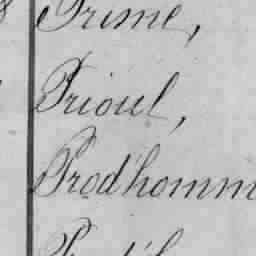 Prime,
Prioul,
Prod'homm